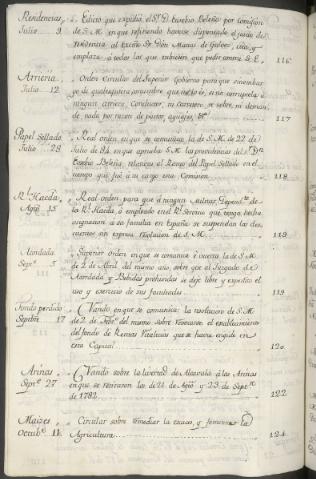 Residencias
Julio... 9.
Edicto que expidió el Sr. D. Eusebio Beleño por comisión
de S. M. en que refiriendo haverse dispensado el juicio de
residencia al Exmo. Sr. Dn. Matias de Galvez, cita y
emplaza à todos los que tubieren que pedir contra S. E. 116
Arrieria
Julio.. 12.
Orden Circular del Superior Gobierno para que sin embar-
go de qualesquiera
ninguna carrera, Conductor, ni
de nada por razon de pastos, aguages, &a 117
Papel Sellado
Julio.. 28
Real orden en que se comunica la de S. M. de 22 de
Julio de 84 en que aprueba S. M. las providencias del Sr. Dn.
Eusebio Beleña, relativas al Ramo del Papel Sellado en el
tiempo que fué à su cargo esta Comision 118
Rl. Hacda.
Agto. 13
Real orden para que à ningun Militar, Dependte. de
la Rl. Hacda. ò empleado en el Rl. Servicio que tenga hecha
asignacion à su familia en España se suspendan los des-
cuentos sin expresa resolucion de S. M. 119
Acordada
Sepre. 3.
Superior orden en que se comunica
de 2 de Abril del mismo año, sobre que el Juzgado de
Acordada y Bebidas prohividas se deje libre y expedito el
uso y exercicio de sus facultades 119
Fondo perdido
Sepbre. 17
Vando en que se comunica la resolucion de S. M.
de 2 de Febo. del mismo sobre
del fondo de Rentas Vitalicias que se havia erigido en
esta Capital 120
Arinas
Septe. 27
Vando sobre la livertad de Alcavala à las Arinas
en que se
de 21 de Agto. y 23 de Septe.
de 1782 122
Maizes
Octubre. 11
Circular sobre remediar la escases, y fomentar la
Agricultura 124